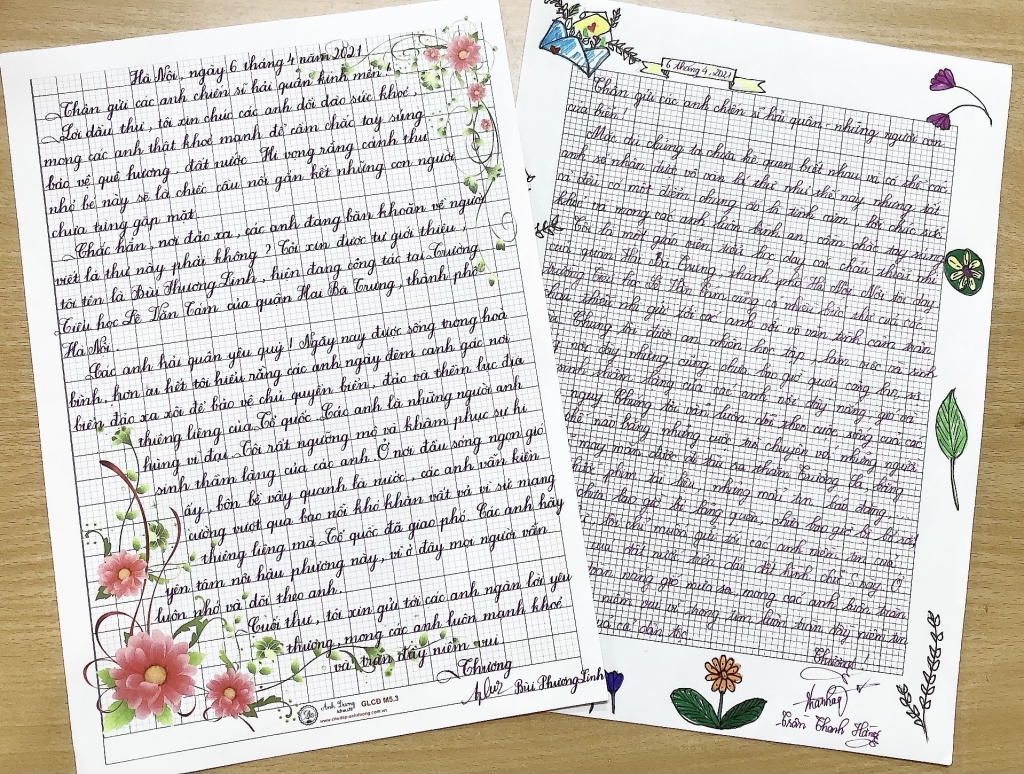 Hà Nội, ngày 6 tháng 4 năm 2021
Thân gửi các anh chiến sĩ hải quân kính mến!
Lời đầu thư, tôi xin chúc các anh dồi dào sức khoẻ,
mong các anh thật khoẻ mạnh để cầm chắc tay súng
bảo vệ quê hương, đất nước. Hi vọng rằng cánh thư
nhỏ bé này sẽ là chiếc cầu nối gắn kết những con người
chưa từng gặp mặt.
Chắc hẳn, nơi đảo xa, các anh đang băn khoăn về người
viết lá thư này phải không? Tôi xin được tự giới thiệu,
tôi tên là Bùi Phương Linh, hiện đang công tác tại Trường
Tiểu học Lê Văn Tám của quận Hai Bà Trưng, thành phố
Hà Nội.
Các anh hải quân yêu quý! Ngày nay được sống trong hoà
bình, hơn ai hết tôi hiểu rằng các anh ngày đêm canh gác nơi
biển đảo xa xôi để bảo vệ chủ quyền biển, đảo và thềm lục địa
thiêng liêng của Tổ quốc. Các anh là những người anh
hùng vĩ đại. Tôi rất ngưỡng mộ và khâm phục sự hi
sinh thầm lặng của các anh. Ở nơi đầu sóng ngọn gió
ấy, bốn bề vây quanh là nước, các anh vẫn kiên
cường vượt qua bao nỗi khó khăn vất vả vì sứ mạng
thiêng liêng mà Tổ quốc đã giao phó. Các anh hãy
yên tâm nơi hậu phương này, vì ở đây mọi người vẫn
luôn nhớ và dõi theo anh.
Cuối thư, tôi xin gửi tới các anh ngàn lời yêu
thương, mong các anh luôn mạnh khoẻ
và tràn đầy niềm vui
Thương
Bùi Phương Linh
Ánh Dương
GLCD M5.3
6 tháng 4, 2021
Thân gửi các anh chiến sĩ hải quân - những người con
của biển.
Mặc dù chúng ta chưa hề quen biết nhau và có thể các
anh sẽ nhận được vô vàn lá thư như thế này nhưng tất
cả đều có một điểm chung đó là tình cảm, lời chúc sức
khoẻ và mong các anh luôn bình an, cầm chắc tay súng
Tôi là một giáo viên tiểu học dạy các cháu thiếu nhi
của quận Hai Bà Trưng, thành phố Hà Nội. Nơi tôi dạy
trường Tiểu học Lê Văn Tám cũng có nhiều bức thư của các
cháu thiếu nhi gửi tới các anh với vô vàn tình cảm trân
Chúng tôi được an nhiên học tập, làm việc và sinh
nơi đây nhưng cũng chưa bao giờ quên công lao, sự
sinh thầm lặng của các anh nơi đầy nắng gió và
nguy. Chúng tôi vẫn luôn dõi theo cuộc sống của các
thế nào bằng những cuộc trò chuyện và những người
may mắn được đi tàu ra thăm Trường Sa, bằng
thước phim tài liệu, những mẩu tin, bài đăng, ...
chưa bao giờ bị lãng quên, chưa bao giờ bị bỏ rơi
Tôi chỉ muốn gửi tới các anh niềm tin của
của đất nước trên dải đất hình chữ S này. Ở
tràn nắng gió mưa sa, mong các anh luôn tràn
niềm vui vì trong tim luôn tràn đầy niềm tin
của cả dân tộc.
Thương
Trần Thanh Hằng